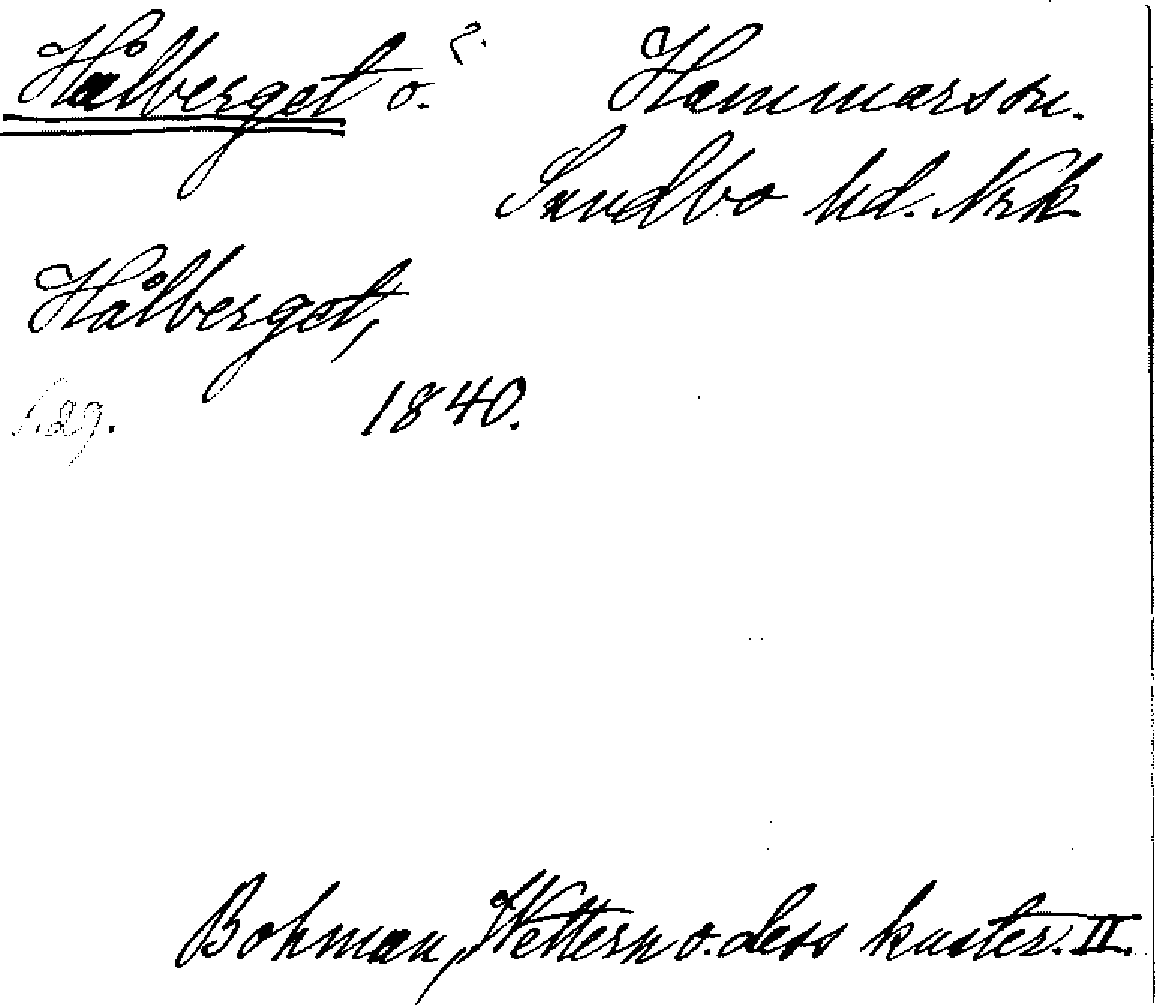 Hålberget o. ? Hammarsön.
Sundbo hd. Nrk
Hålberget,
1840.
Bohman, Wettern o. dess kuster. II.